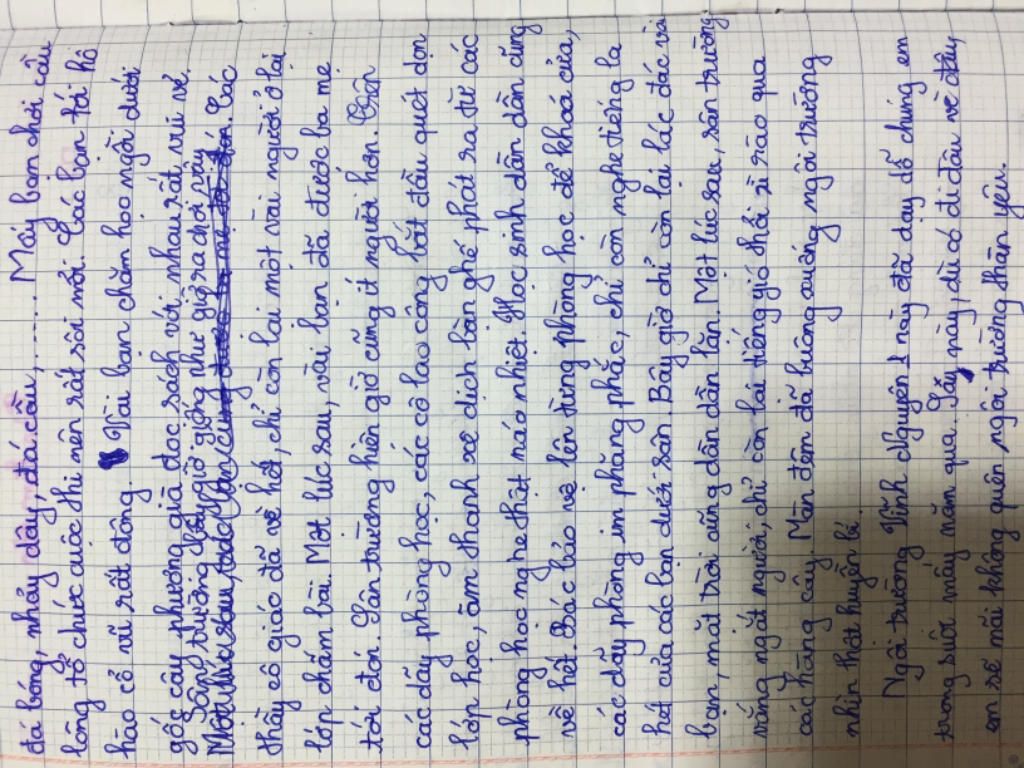 đá bóng, nhảy dây, đá cầu,....... Mấy bạn chơi cầu
lông tổ chức cuộc thi nên rất sôi nổi. Các bạn tới hô
hào cổ vũ rất đông. Vài bạn chăm học ngồi dưới
gốc cây phượng già đọc sách với nhau rất vui vẻ.
Sân trường bây giờ giống như giờ ra chơi vậy. Các
thầy cô giáo đã về hết, chỉ còn lại một vài người ở lại
lớp chấm bài. Một lúc sau, vài bạn đã được ba mẹ
tới đón. Sân trường hiện giờ cũng ít người hơn. Trên
các dãy phòng học, các cô lao công bắt đầu quét dọn
lớp học, âm thanh xê dịch bàn ghế phát ra từ các
phòng học nghe thật náo nhiệt. Học sinh dần dần cũng
về hết. Bác bảo vệ lên từng phòng học để khoá cửa,
các dãy phòng im phăng phắc, chỉ còn nghe tiếng la
hét của các bạn dưới sân. Bây giờ chỉ còn lại lác đác vài
bạn, mặt trời cũng dần dần lặn. Một lúc sau, sân trường
vắng ngắt người, chỉ còn lại tiếng gió thổi rì rào qua
các hàng cây. Màn đêm đã buông xuống ngôi trường
nhìn thật huyền bí.
Ngôi trường Vĩnh Nguyên 1 này đã dạy dỗ chúng em
trong suốt mấy năm qua. Sau này, dù có đi đâu về đâu,
em sẽ mãi không quên ngôi trường thân yêu.